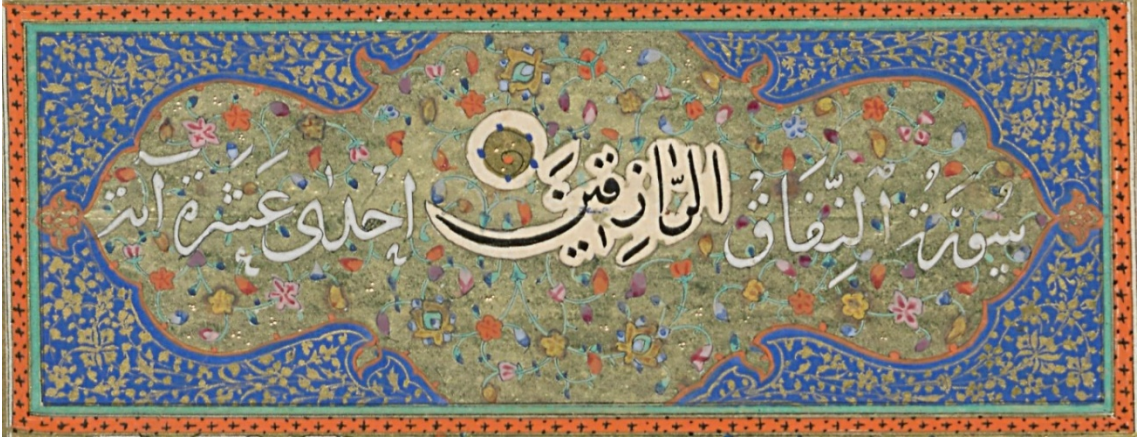 سُورَةُ النِّفَاقْ الرَّازِقِينَ إِحْدٰى عَشَرَةَ آيَة